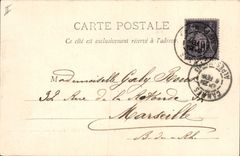 CARTE POSTALE
Ce côté est exclusivement réservé à l'adresse
Mademoiselle Gaby
32, Rue de la Rotonde
Marseille
B. du Rh.